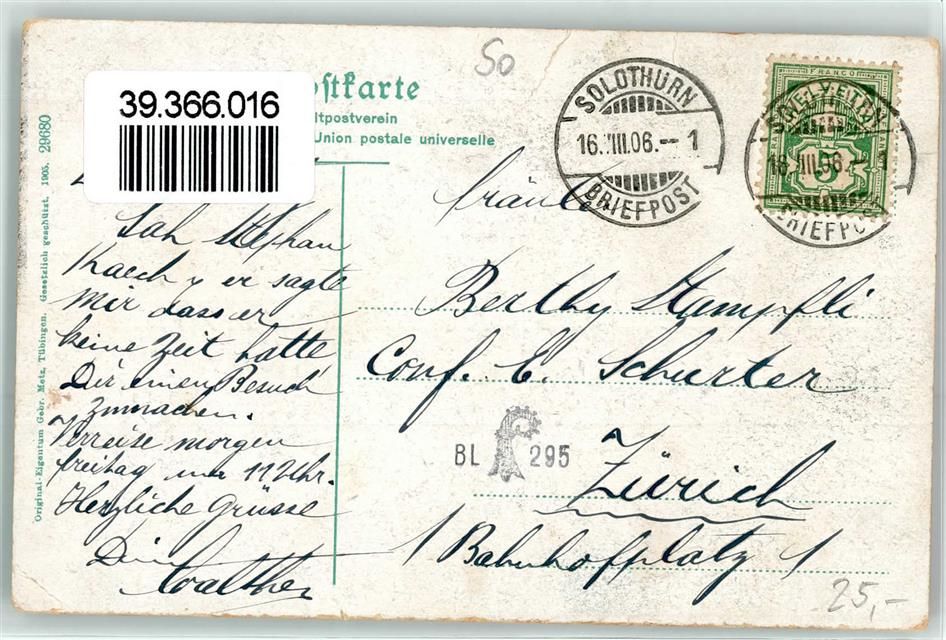 So
39.366.016
ostkarte
ltpostverein
Union postale universelle
SOLOTHURN
16.VIII.06.-1
BRIEFPOST
FRANCO
16.VIII.06.-1
BRIEFPOST
Original-Eigentum Gebr. Metz, Tübingen. Gesetzlich geschützt, 1905. 29680
Sah Stephan
Kaech u er sagte
Mir dass er
keine Zeit hatte
Dir einen Besuch
zumachen.
Verreise morgen
freitag um 11 Uhr.
Herzliche Grüsse
Dein
Walther
Fräulein
Berthy Stampfli
Conf. E. Schurter
BL 295
Zürich
1 Bahnhofplatz 1
25,-